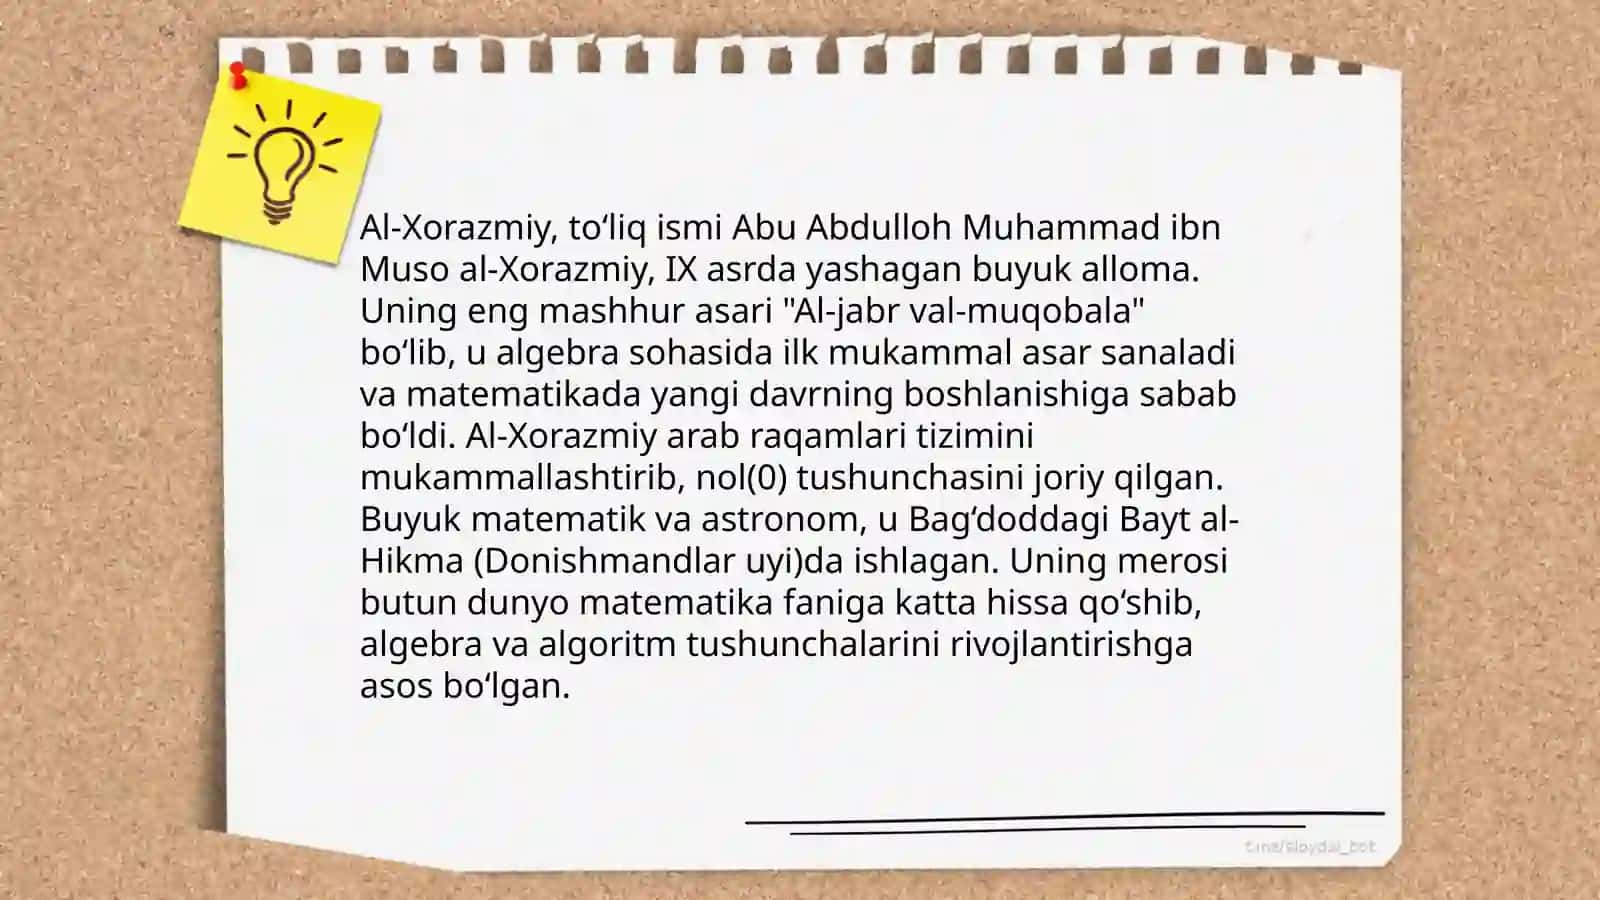 Al-Xorazmiy, to‘liq ismi Abu Abdulloh Muhammad ibn
Muso al-Xorazmiy, IX asrda yashagan buyuk alloma.
Uning eng mashhur asari "Al-jabr val-muqobala"
bo‘lib, u algebra sohasida ilk mukammal asar sanaladi
va matematikada yangi davrning boshlanishiga sabab
bo‘ldi. Al-Xorazmiy arab raqamlari tizimini
mukammallashtirib, nol(0) tushunchasini joriy qilgan.
Buyuk matematik va astronom, u Bag‘doddagi Bayt al-
Hikma (Donishmandlar uyi)da ishlagan. Uning merosi
butun dunyo matematika faniga katta hissa qo‘shib,
algebra va algoritm tushunchalarini rivojlantirishga
asos bo‘lgan.